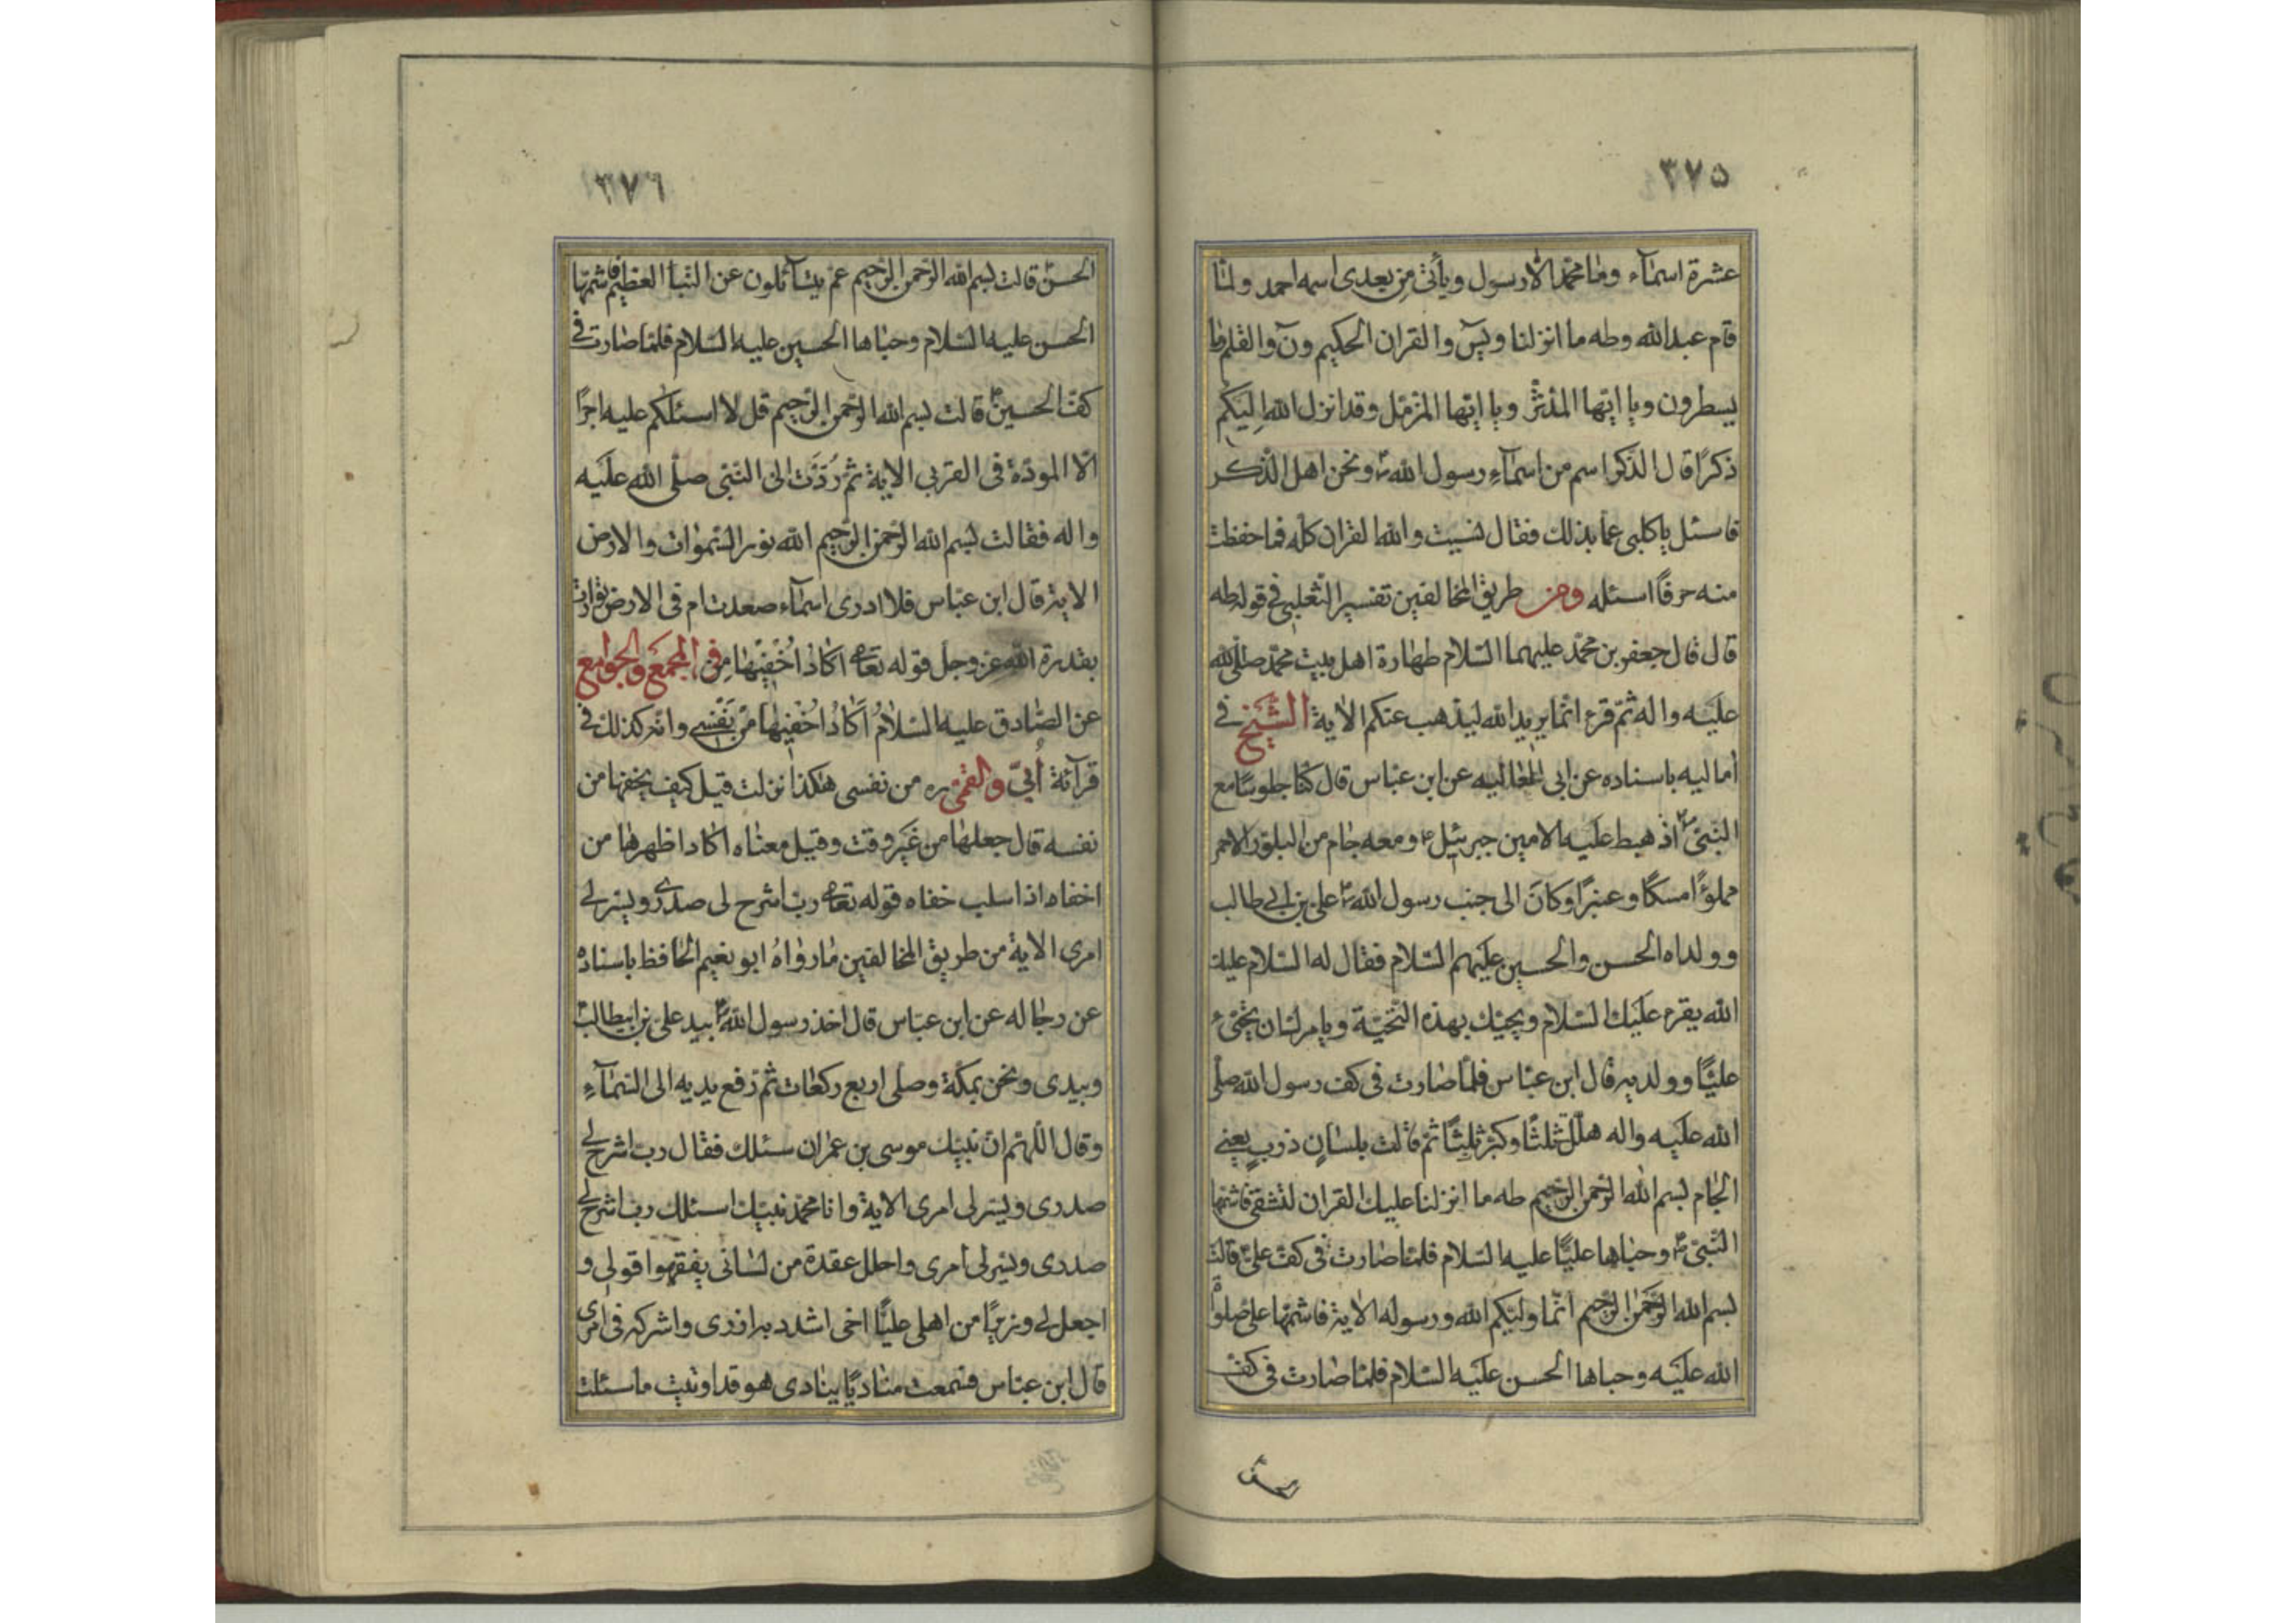 ٣٧۵
عشرة اسمآء وما محمّد الّا رسول ويأتى مِن بعدى اسمه احمد ولمّا
قام عبدالله وطه ما انزلنا ويسۤ والقران الحكيم ونۤ والقلم وما
يسطرون ويا ايّها المدّثّر ويا ايّها المزمّل وقد انزل الله اليكم
ذكرًا قال الذكر اسم من اسمآءِ رسول الله ص ونحن اهل الذّكر
فاسئل يا كلبى عمّا بذلك فقال نسيت والله القران كلّه فما حفظت
منه حرفًا اسئله ومن طريق المخالفين تفسير الثّعلبى فى قوله طه
قال قال جعفر بن محمّد عليهما السّلام طهارة اهل بيت محمّد صلّى الله
عليه واله ثمّ قرء انّما يريد الله ليذهب عنكم الاية الشّيخ فى
أماليه باسناده عن ابى العاليه عن ابن عبّاس قال كنّا جلوسًا مع
النّبىّ ص اذ هبط عليه الامين جبرئيل ع ومعه جام من البلّور الاحمر
مملوًّا مسكًا وعنبرًا وكانَ الى جنب رسول الله ص علىّ بن ابى طالب
وولداه الحسن والحسين عليهم السّلام فقال له السّلام عليك
الله يقرء عليك السّلام ويحيّيك بهذه التّحيّة ويامرك ان تحيّى ء
عليًّا وولديه قال ابن عبّاس فلمّا صارت فى كف رسول الله صلّى
الله عليه واله هلّل ثلثًا وكبّر ثلثًا ثمّ قالت بلسانٍ ذربٍ يعنى
الجام بسم الله الرّحمن الرّحيم طه ما انزلنا عليك القران لتشقى فاشتمّها
النّبىّ ص وحباها عليًّا عليه السّلام فلمّا صارت فى كفّ علىّ قالت
بسم الله الرّحمن الرّحيم انّما وليّكم الله ورسوله الاية فاشتمّها على صلوة
الله عليه وحباها الحسن عليه السّلام فلمّا صارت فى كفّ
٣٧٦
الحسن قالت بسم الله الرّحمن الرّحيم عمّ يتسآئلون عن النّبأ العظيم فاشتمّها
الحسن عليه السّلام وحباها الحسين عليه السّلام فلمّا صارت فى
كفّ الحسين ع قالت بسم الله الرّحمن الرّحيم قل لا اسئلكم عليه اجرًا
الّا المودّة فى القربى الاية ثمّ رُدّت الى النّبى صلّى الله عليه
واله فقالت بسم الله الرّحمن الرّحيم الله نور السّموات والارض
الاية قال ابن عبّاس فلا ادرى اسمآء صعدت ام فى الارض توارت
بقدرة الله عزّوجلّ قوله تعالى اكادُ اُخْفيها من فى المجمع والجوامع
عن الصّادق عليه السّلامُ اَكادُ اُخْفيها مِنْ نَفْسى وانّه كذلك فى
قرآئة أُبىّ والقمّى ره من نفسى هكذا نزلت قيل كيف يخفيها من
نفسه قال جعلها من غير وقت وقيل معناه اكاد اظهرها من
اخفاه اذا سلب خفاه قوله تعالى ربّ اشرح لى صدرى ويسّر لى
امرى الاية من طريق المخالفين ما رواهُ ابو نعيم الحافظ باسناده
عن رجاله عن ابن عبّاس قال اخذ رسول الله ص بيد علىّ بن ابيطالب
وبيدى ونحن بمكّة وصلّى اربع ركعات ثمّ رفع يديه الى السّمآءِ
وقال اللّهمّ انّ نبيّك موسى بن عمران سئلك فقال ربّ اشرح لى
صدرى ويسّر لى امرى الاية وانا محمّد نبيّك اسئلك ربّ اشرح لى
صدرى ويسّر لى أمرى واحلل عقدة من لسانى يفقهوا قولى و
اجعل لى وزيرًا من اهلى عليًّا اخى اشدد به ازرى واشركه فى امرى
قال ابن عبّاس فسمعت مناديًا ينادى هو قد اوتيت ما سئلت